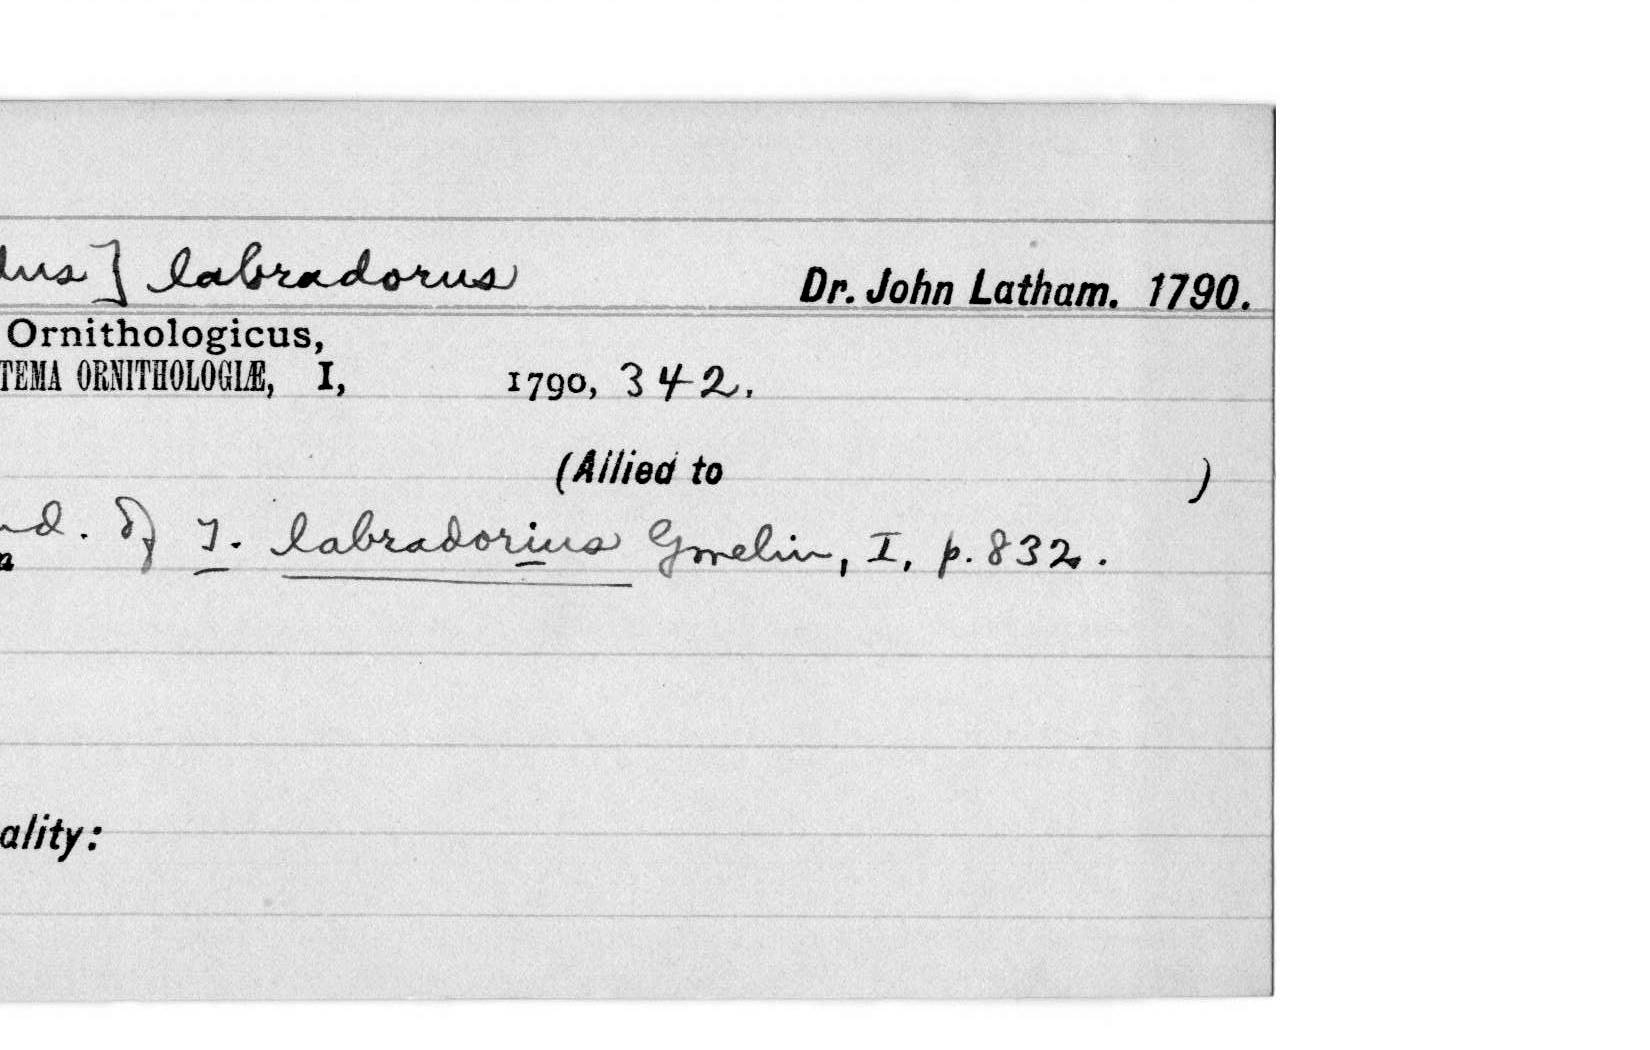 dus] labradorus
Dr. John Latham. 1790.
Ornithologicus,
TEMA ORNITHOLOGIÆ, I, 1790, 342.
(Allied to )
nd. of T. labradorius Gmelin, I, p. 832.
a
ality: